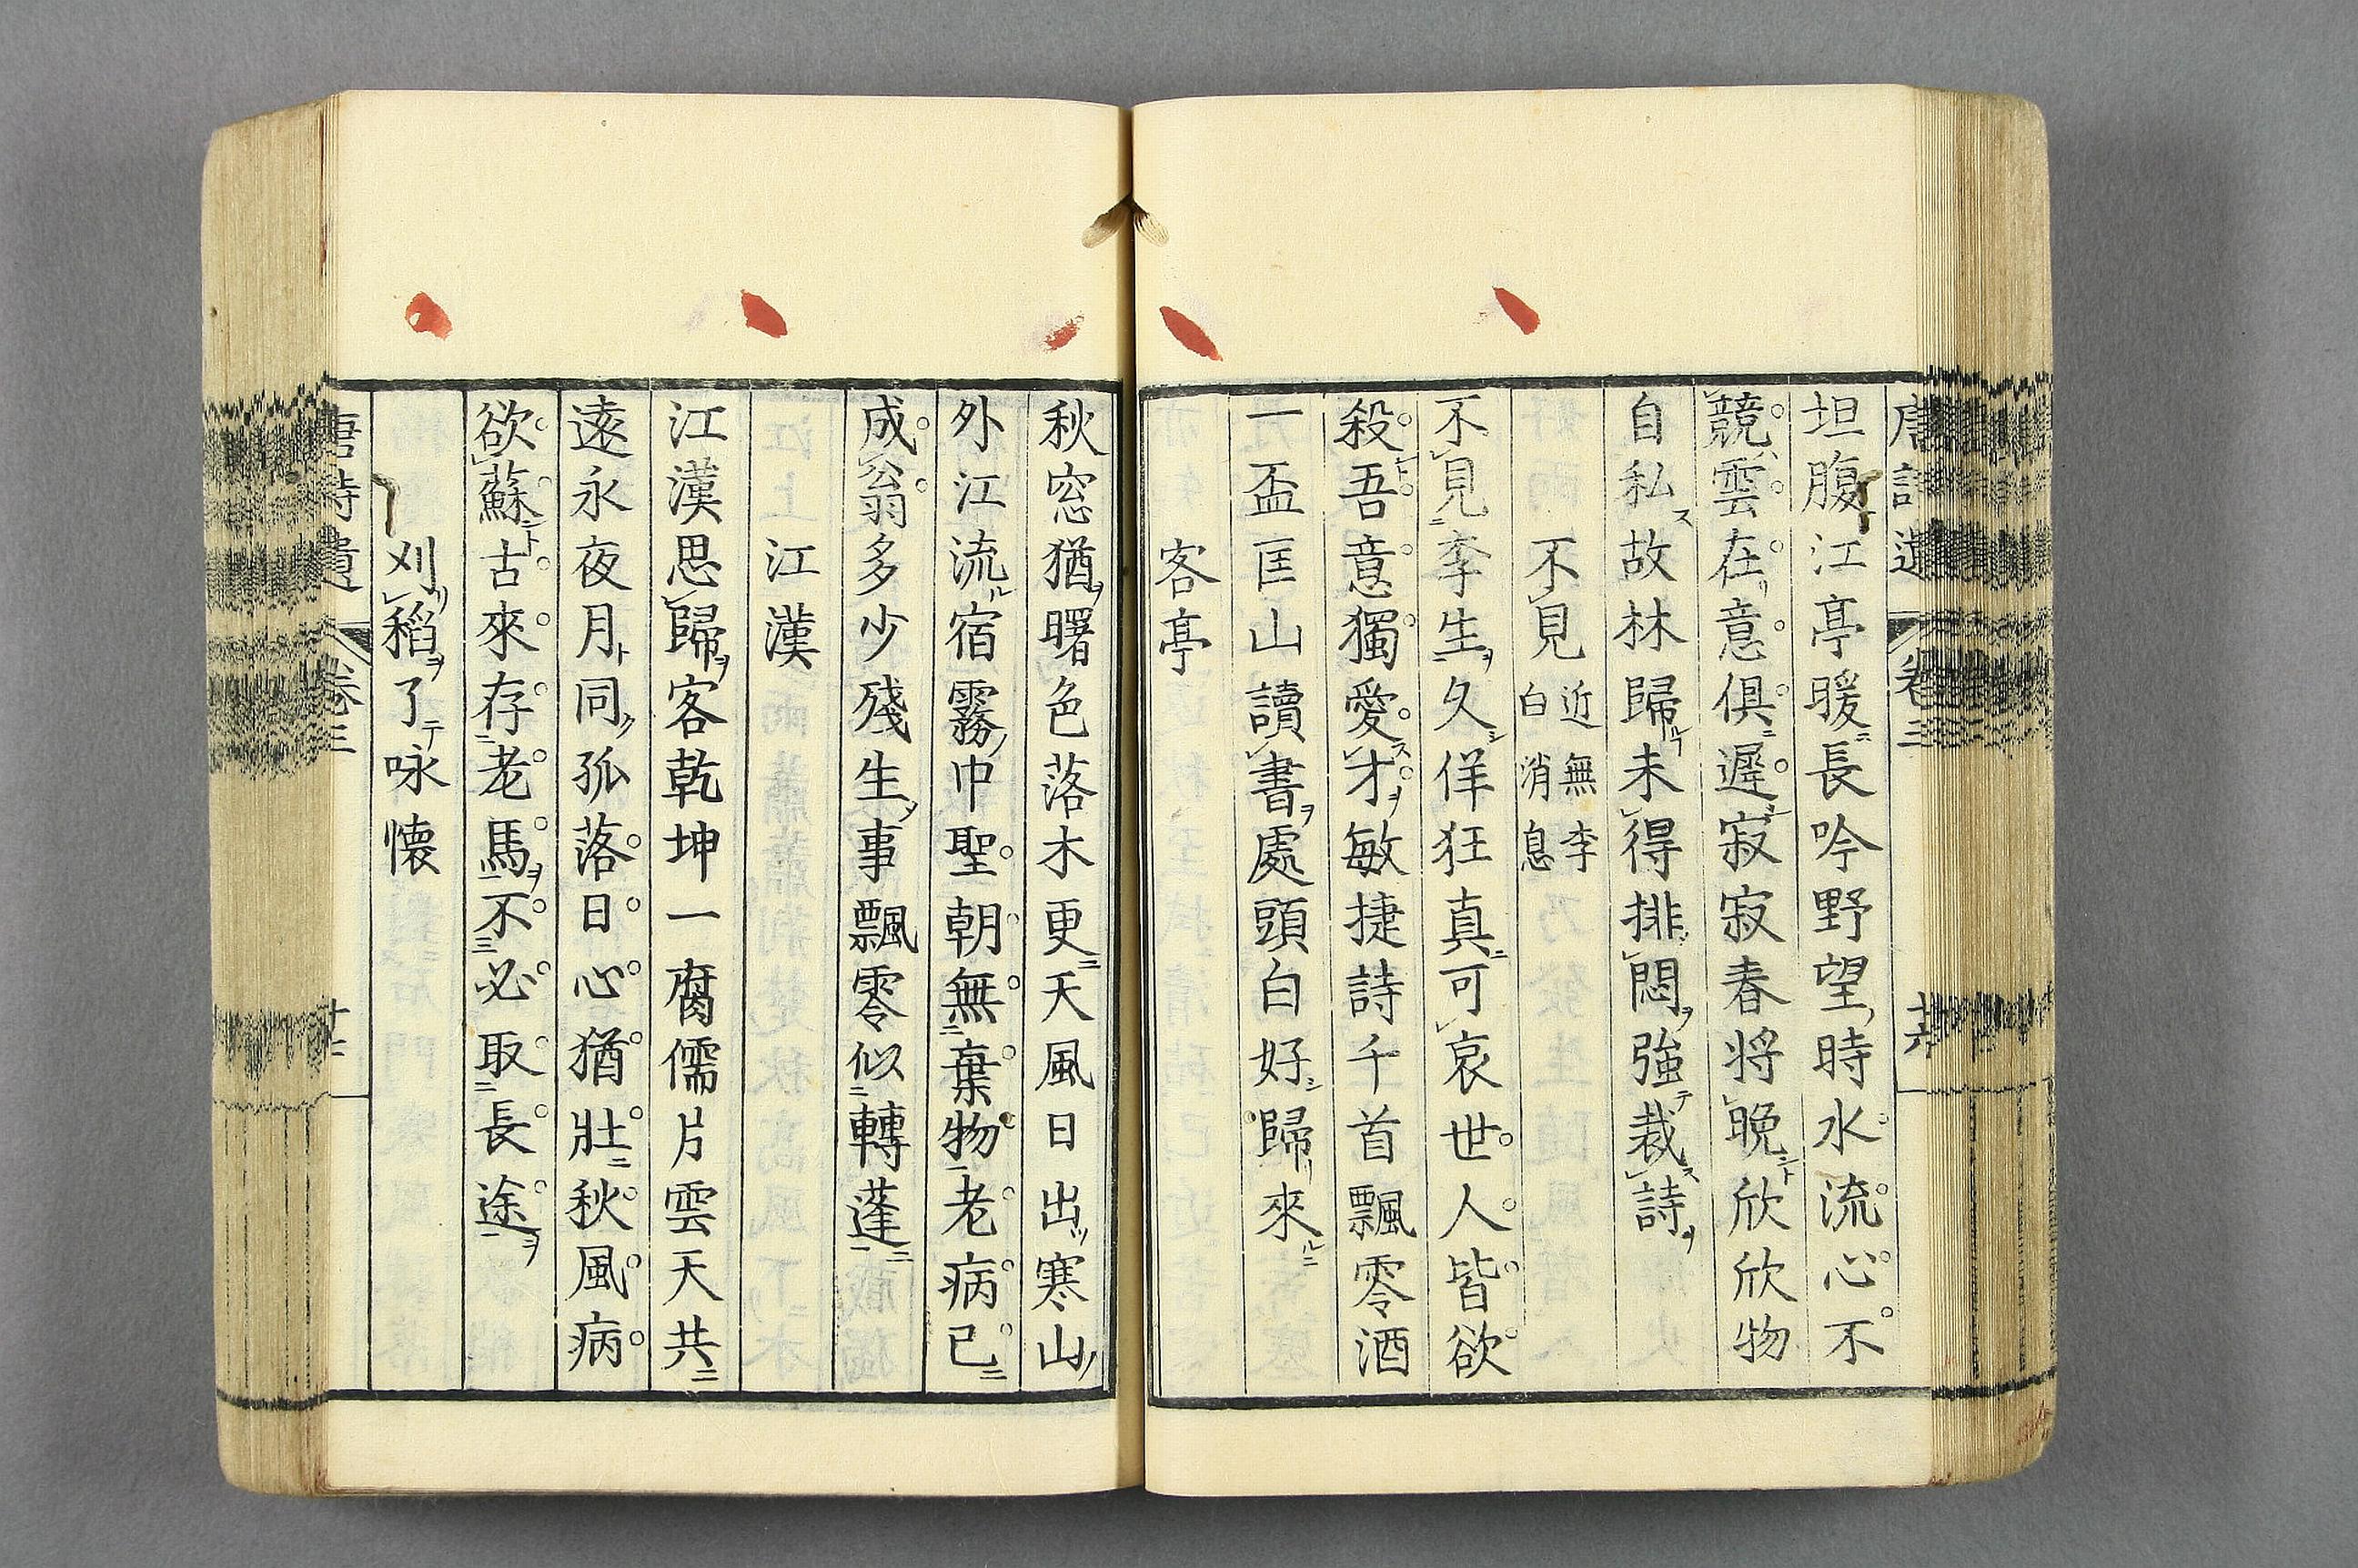 坦腹江亭暖長吟野望時水流心不
競雲在意俱遲寂寂春將晚欣欣物
自私故林歸未得排悶強裁詩
不見近無李白消息
不見李生久佯狂真可哀世人皆欲
殺吾意獨愛才敏捷詩千首飄零酒
一盃匡山讀書處頭白好歸來
客亭
秋窓猶曙色落木更天風日出寒山
外江流宿霧中聖朝無棄物老病已
成翁多少殘生事飄零似轉蓬
江漢
江漢思歸客乾坤一腐儒片雲天共
遠永夜月同孤落日心猶壯秋風病
欲蘇古來存老馬不必取長途
刈稻了咏懷
唐詩遺
卷三